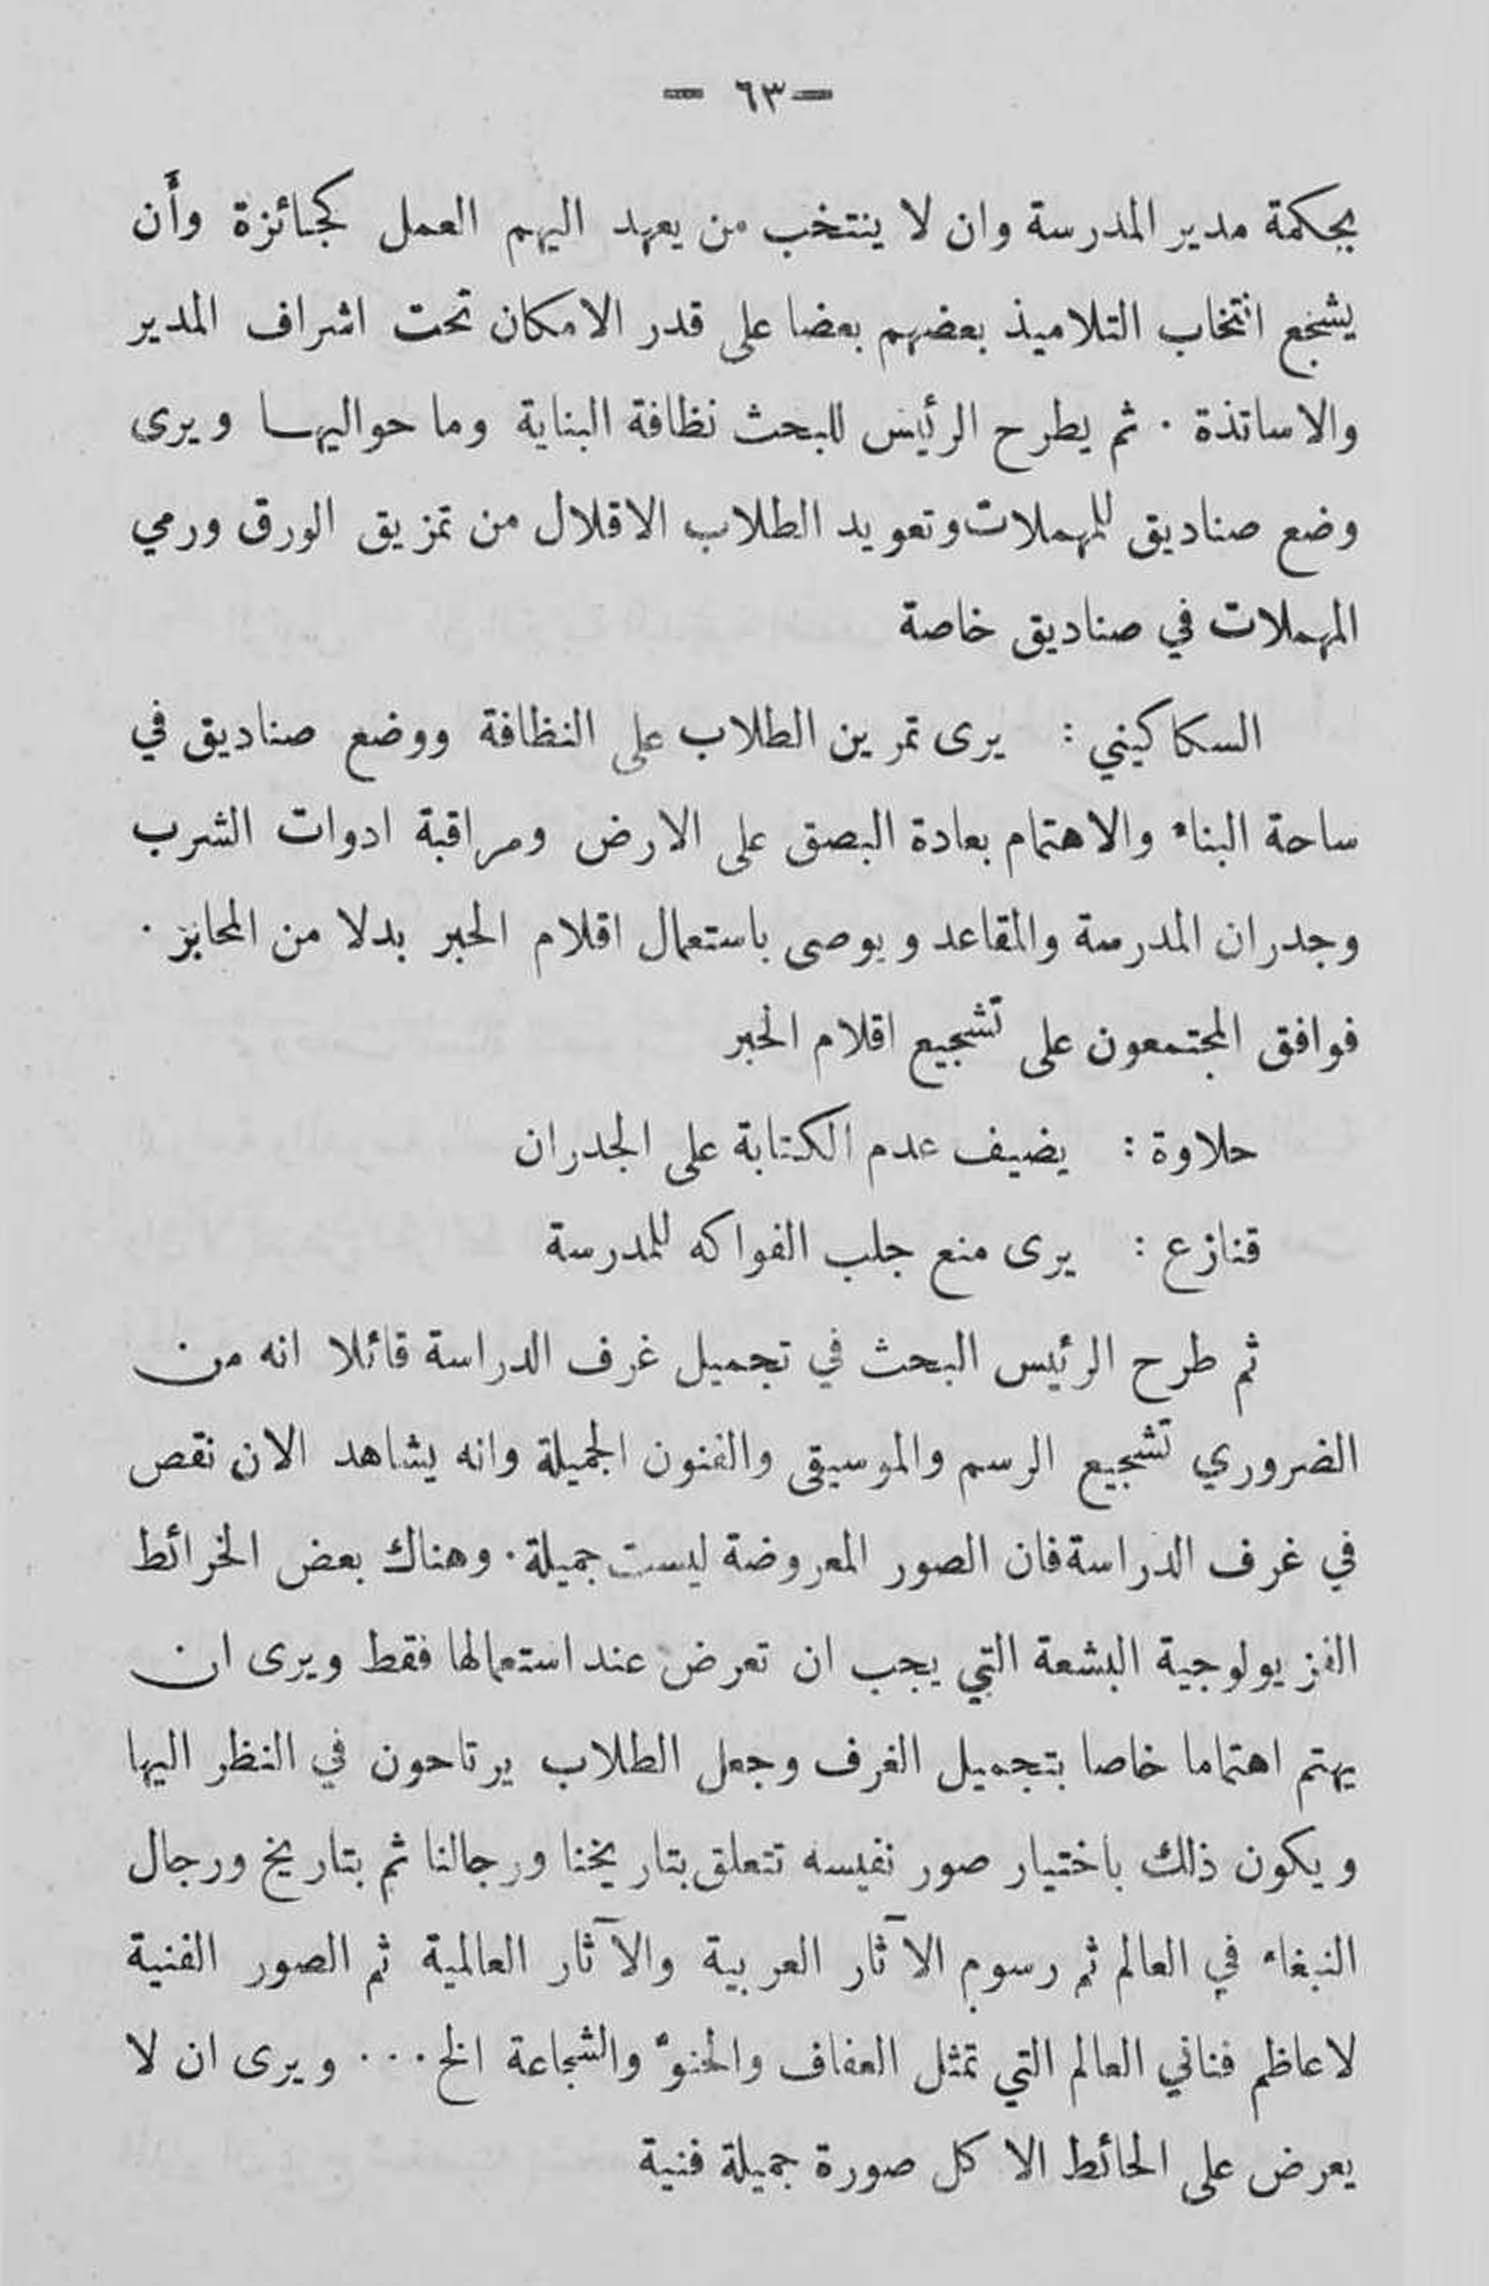 — ٦٣ —
بحكمة مدير المدرسة وان لا ينتخب من يعهد اليهم العمل كجائزة وأن
يشجع انتخاب التلاميذ بعضهم بعضا على قدر الامكان تحت اشراف المدير
والاساتذة . ثم يطرح الرئيس للبحث نظافة البناية وما حواليها ويرى
وضع صناديق للمهملات وتعويد الطلاب الاقلال من تمزيق الورق ورمي
المهملات في صناديق خاصة
السكاكيني : يرى تمرين الطلاب على النظافة ووضع صناديق في
ساحة البناء والاهتمام بعادة البصق على الارض ومراقبة ادوات الشرب
وجدران المدرسة والمقاعد ويوصى باستعمال اقلام الحبر بدلا من المحابر .
فوافق المجتمعون على تشجيع اقلام الحبر
حلاوة : يضيف عدم الكتابة على الجدران
قنازع : يرى منع جلب الفواكه للمدرسة
ثم طرح الرئيس البحث في تجميل غرف الدراسة قائلا انه من
الضروري تشجيع الرسم والموسيقى والفنون الجميلة وانه يشاهد الان نقص
في غرف الدراسة فان الصور المعروضة ليست جميلة . وهناك بعض الخرائط
الفزيولوجية البشعة التي يجب ان تعرض عند استعمالها فقط ويرى ان
يهتم اهتماما خاصا بتجميل الغرف وجعل الطلاب يرتاحون في النظر اليها
ويكون ذلك باختيار صور نفيسه تتعلق بتاريخنا ورجالنا ثم بتاريخ ورجال
النبغاء في العالم ثم رسوم الآثار العربية والآثار العالمية ثم الصور الفنية
لاعاظم فناني العالم التي تمثل العفاف والحنوّ والشجاعة الخ ... ويرى ان لا
يعرض على الحائط الا كل صورة جميلة فنية